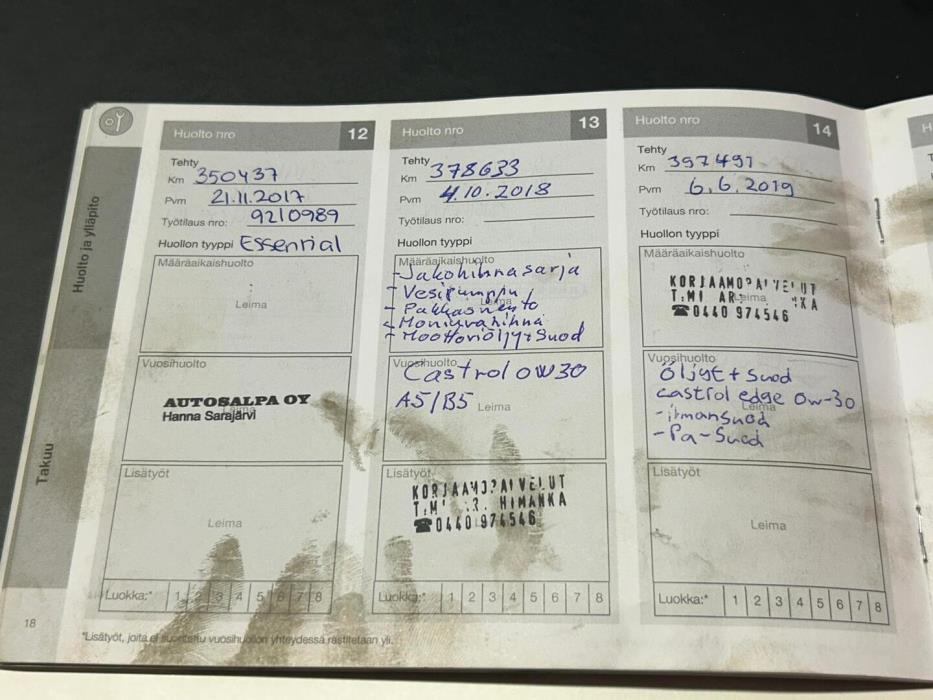 Huolto ja ylläpito
Takuu
Huolto nro 12
Tehty
Km 350437
Pvm 21.11.2017
Työtilaus nro: 9210989
Huollon tyyppi Essential
Määräaikaishuolto
Leima
Vuosihuolto
AUTOSALPA OY
Hanna Sarajärvi
Leima
Lisätyöt
Leima
Luokka:* 1 2 3 4 5 6 7 8
Huolto nro 13
Tehty
Km 378633
Pvm 4.10.2018
Työtilaus nro:
Huollon tyyppi
Määräaikaishuolto
-Jakohihnasarja
- Vesipumppu
Leima
- Pakkasneste
- Moniurahihna
- Moottoriöljy+Suod
Vuosihuolto
Castrol 0W30
A5/B5 Leima
Lisätyöt
KORJAAMOPALVELUT
HIMANKA
☎0440 974546
Luokka:* 1 2 3 4 5 6 7 8
Huolto nro 14
Tehty
Km 397491
Pvm 6.6.2019
Työtilaus nro:
Huollon tyyppi
Määräaikaishuolto
KORJAAMOPALVELUT
T:MI
Leima
☎0440 974546
Vuosihuolto
Öljyt + Suod
castrol edge 0w-30
Leima
-ilmansuod
-Pa-Suod
Lisätyöt
Leima
Luokka:* 1 2 3 4 5 6 7 8
18
*Lisätyöt, joita ei suoritettu vuosihuollon yhteydessä rastitetaan yli.